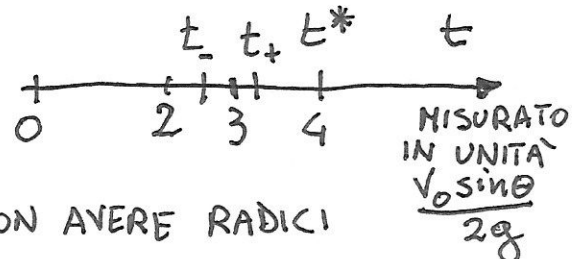 t₋ t₊ t* t
0 2 3 4
MISURATO
IN UNITÀ
V₀ sinθ
2g
ON AVERE RADICI